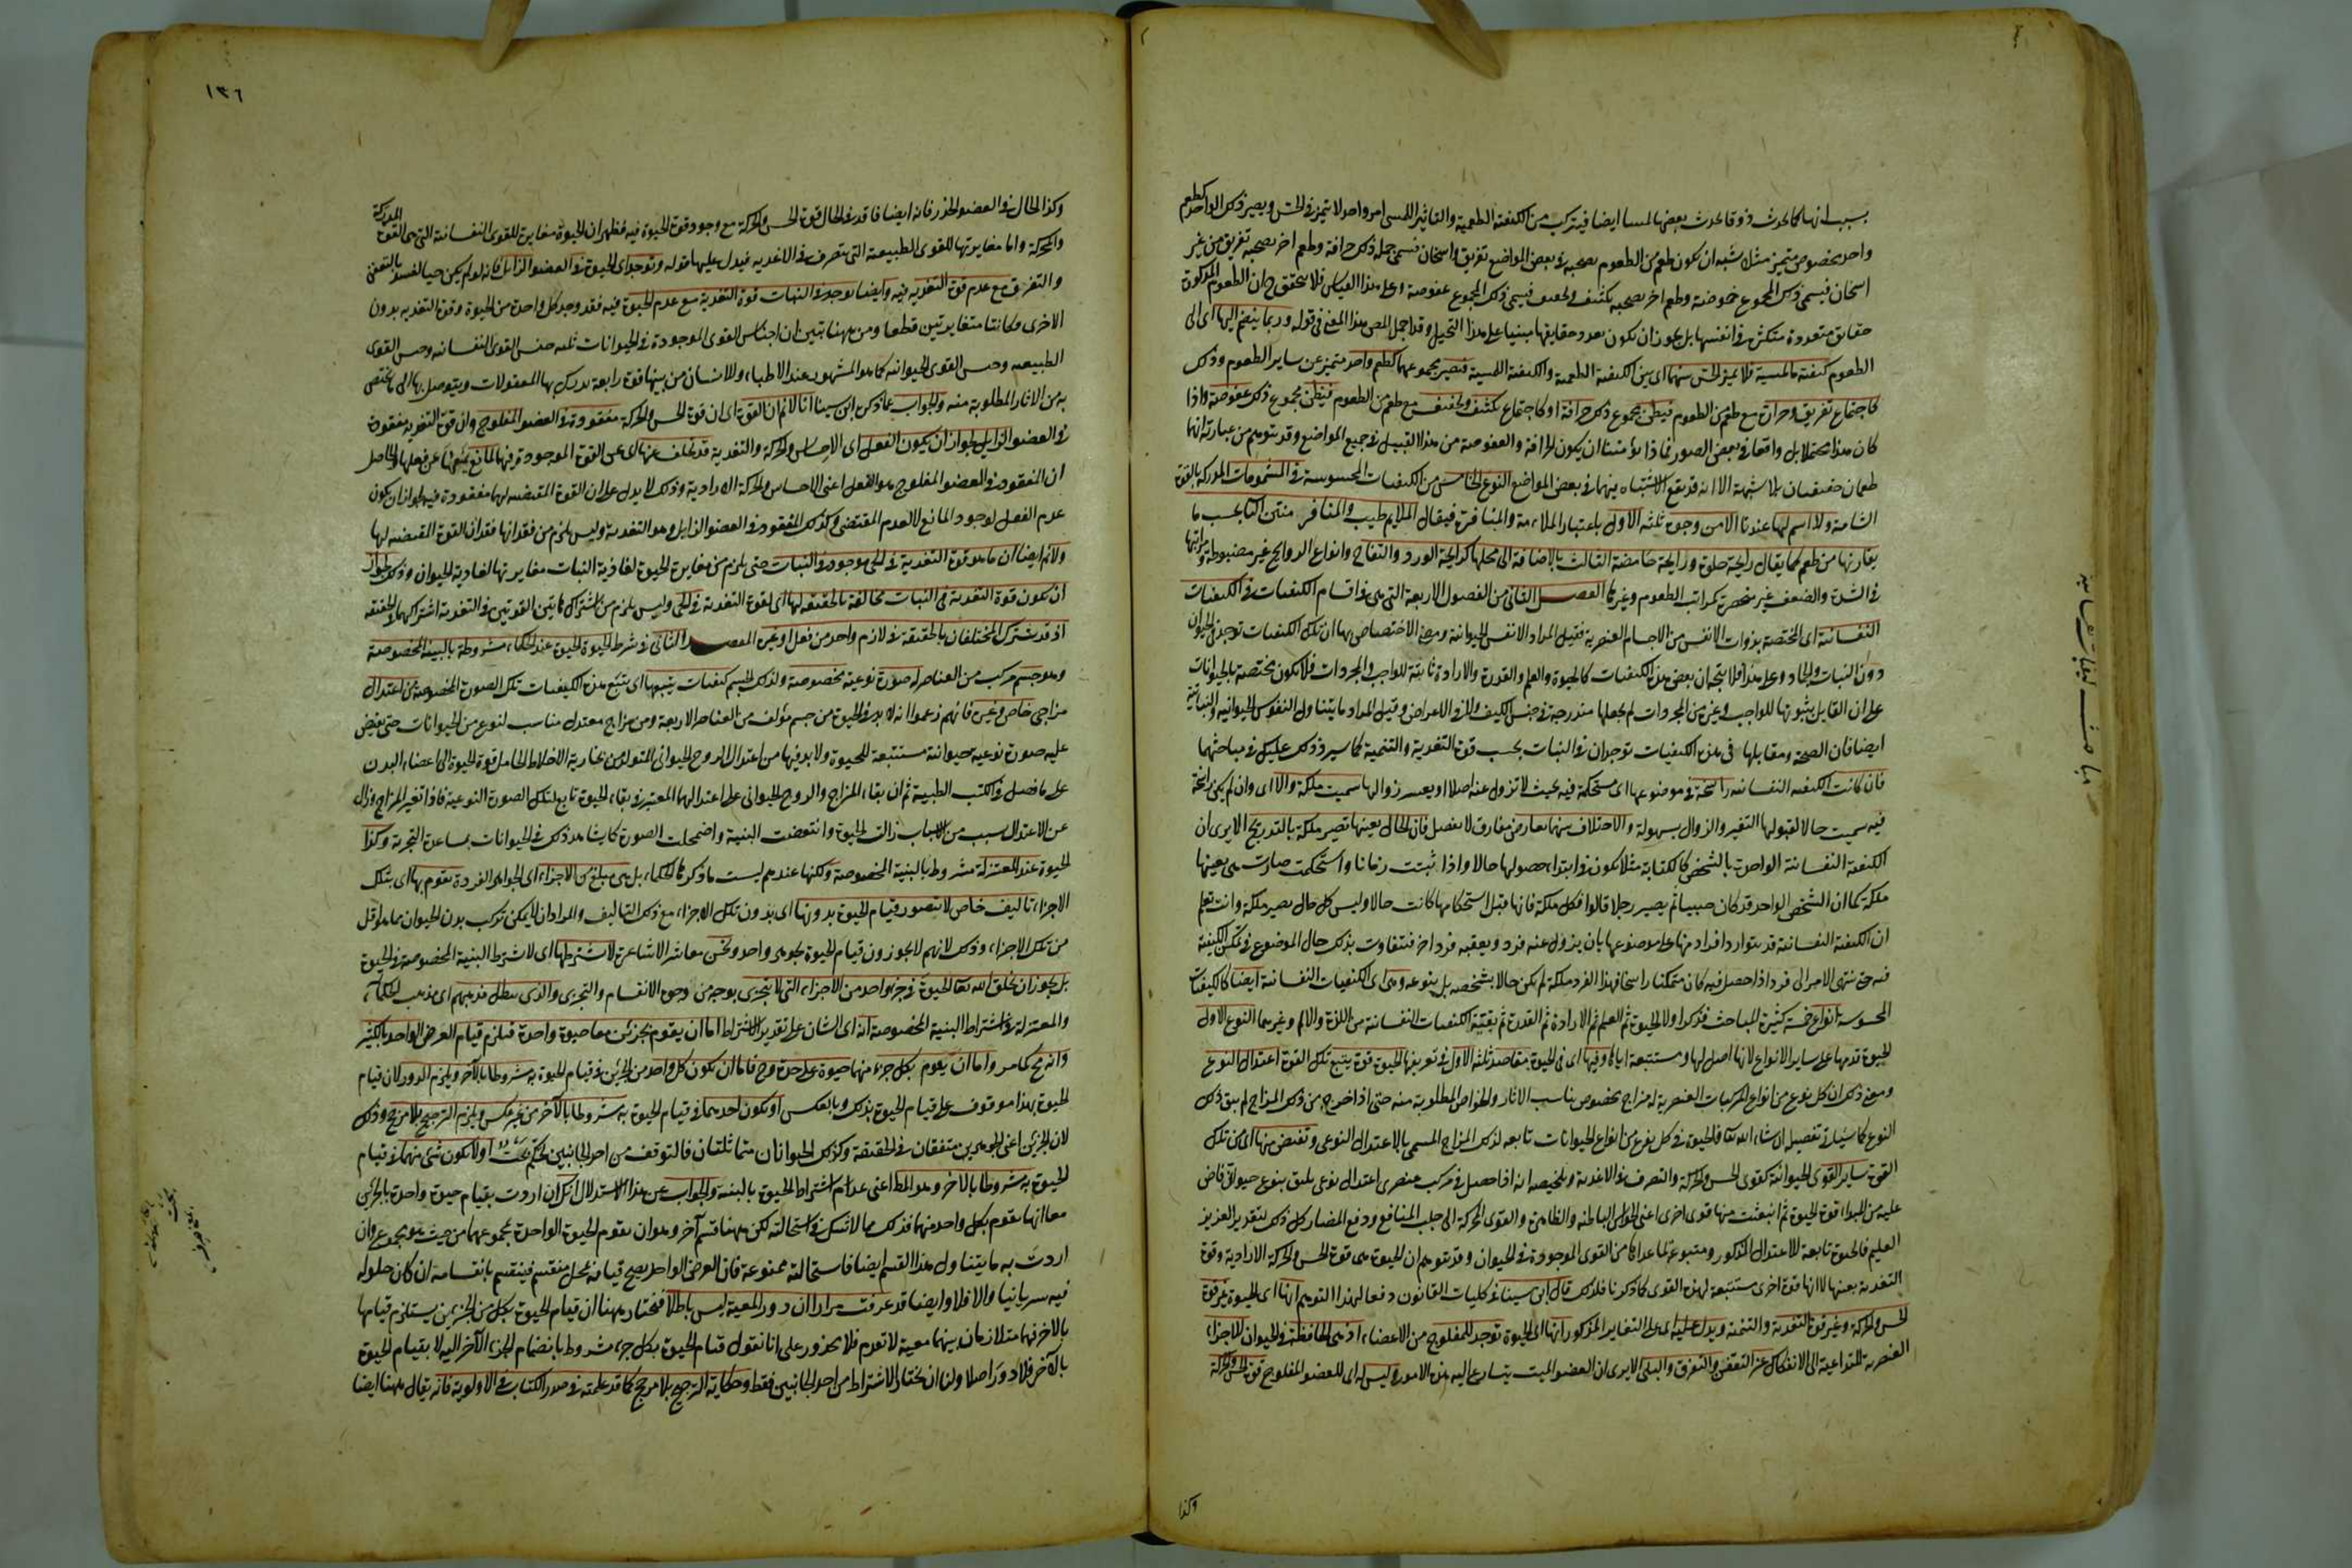 بسبب انها كما تحدث ذوقا تحدث بعضها لمسا ايضا فيتركب من الكيفية الطعمية والتاثير اللمسى امر واحد لا يتميز فى الحس ويصير ذلك الواحد كطعم
واحد مخصوص متميز مثل شبه ان يكون طعم من الطعوم يصحبه فى بعض المواضع تفريق واسخان فيسمى جملة ذلك حرافة وطعم اخر يصحبه تفريق من غير
اسخان فيسمى ذلك المجموع حموضة وطعم اخر يصحبه تكثيف وتجفيف فيسمى ذلك المجموع عفوصة وعلى هذا القياس فلا يتحقق ح ان الطعوم المذكورة
حقايق متعددة متكثرة فى انفسها بل يجوز ان يكون تعدد حقايقها مبنيا على هذا التخيل وقد اجمل المص هذا المعنى فى قوله وربما ينضم اليها اى الى
الطعوم كيفية ملمسية فلا يميز الحس بينهما اى بين الكيفية الطعمية والكيفية اللمسية فيصير مجموعهما كطعم واحد متميز عن ساير الطعوم وذلك
كاجتماع تفريق وحرارة مع طعم من الطعوم فيظن مجموع ذلك حرافة او كاجتماع تكثيف وتجفيف مع طعم من الطعوم فيظن مجموع ذلك عفوصة واذا
كان هذا محتملا بل واقعا فى بعض الصور فماذا يؤمننا ان يكون الحرافة والعفوصة من هذا القبيل فى جميع المواضع وقد يتوهم من عبارته انها
طعمان حقيقيان بلا شبهة الا انه قد يقع الاشتباه بينهما فى بعض المواضع النوع الخامس من الكيفيات المحسوسة فى المشمومات المدركة بالقوة
الشامة ولا اسم لها عندنا الا من وجوه ثلثة الاول باعتبار الملاءمة والمنافرة فيقال الملايم طيب والمنافر منتن الثانى بحسب ما
يقارنها من طعم كما يقال رايحة حلوة ورايحة حامضة الثالث بالاضافة الى محلها كرايحة الورد والتفاح وانواع الروايح غير مضبوطة ومراتبها
فى الشدة والضعف غير منحصرة كمراتب الطعوم وغيرها الفصل الثانى من الفصول الاربعة التى هى فى اقسام الكيفيات فى الكيفيات
النفسانية اى المختصة بذوات الانفس من الاجسام العنصرية فقيل المراد الانفس الحيوانية ومعنى الاختصاص بها ان تلك الكيفيات توجد فى الحيوان
دون النبات والجماد وعلى هذا فلا يتجه ان بعض هذه الكيفيات كالحيوة والعلم والقدرة والارادة ثابتة للواجب والمجردات فلا يكون مختصة بالحيوانات
على ان القايل بثبوتها للواجب وغيره من المجردات لم يجعلها مندرجة فى جنس الكيف ولا فى الاعراض وقيل المراد ما يتناول النفوس الحيوانية والنباتية
ايضا فان الصحة ومقابلها فى هذه الكيفيات توجدان فى النبات بحسب قوة التغذية والتنمية كما سيرد ذلك عليك فى مباحثهما
فان كانت الكيفية النفسانية راسخة فى موضوعها اى مستحكمة فيه بحيث لا تزول عنه اصلا او يعسر زوالها سميت ملكة والا اى وان لم يكن راسخة
فيه سميت حالا لقبولها التغير والزوال بسهولة والاختلاف بينهما بعارض مفارق لا بفصل فان الحال بعينها تصير ملكة بالتدريج الا يرى ان
الكيفية النفسانية الواحدة بالشخص كالكتابة مثلا يكون فى ابتداء حصولها حالا واذا ثبتت زمانا واستحكمت صارت هى بعينها
ملكة كما ان الشخص الواحد قد كان صبيا ثم يصير رجلا قالوا فكل ملكة فانها قبل استحكامها كانت حالا وليس كل حال يصير ملكة وانت تعلم
ان الكيفية النفسانية قد يتوارد افراد منها على موضوعها بان يزول عنه فرد ويعقبه فرد اخر فيتفاوت بذلك حال الموضوع فى تمكن الكيفية
فيه حتى ينتهى الامر الى فرد اذا حصل فيه كان متمكنا راسخا فهذا الفرد ملكة لم يكن حالا بشخصه بل بنوعه وهى اى الكيفيات النفسانية ايضا كالكيفيات
المحسوسة انواع خمسة كثيرة المباحث فذكر اولا الحيوة ثم العلم ثم الارادة ثم القدرة ثم بقية الكيفيات النفسانية من اللذة والالم وغيرهما النوع الاول
الحيوة قدمها على ساير الانواع لانها اصل لها ومستتبعة اياها وفيها اى فى الحيوة مقاصد ثلثة الاول فى تعريفها الحيوة قوة يتبع تلك القوة اعتدال النوع
ومعنى ذلك ان كل نوع من انواع المركبات العنصرية له مزاج مخصوص يناسب الاثار والخواص المطلوبة منه حتى اذا خرج من ذلك المزاج لم يبق ذلك
النوع كما سياتى تفصيل ان شاء الله تعا فالحيوة فى كل نوع من انواع الحيوانات تابعة لذلك المزاج المسمى بالاعتدال النوعى وتفيض منها اى من تلك
القوة ساير القوى الحيوانية كقوى الحس والحركة والتصرف فى الاغذية وتلخيصه انه اذا حصل فى مركب عنصرى اعتدال نوعى يليق بنوع حيوانى فاض
عليه من المبدا قوة الحيوة ثم انبعثت منها قوى اخرى اعنى الحواس الباطنة والظاهرة والقوى المحركة الى جلب المنافع ودفع المضار كل ذلك بتقدير العزيز
العليم فالحيوة تابعة للاعتدال المذكور ومتبوعة لما عداها من القوى الموجودة فى الحيوان وقد يتوهم ان الحيوة هى قوة الحس والحركة الارادية وقوة
التغذية بعينها لا انها قوة اخرى مستتبعة لهذه القوى كما ذكرنا فلذلك قال ابن سينا فى كليات القانون دفعا لهذا التوهم انها اى الحيوة غير قوة
الحس والحركة وغير قوة التغذية والتنمية ويدل عليه اى على التغاير المذكور انها اى الحيوة توجد للمفلوج من الاعضاء اذ هى الحافظة فى الحيوان للاجزاء
العنصرية المتداعية الى الانفكاك عن التعفن والتفرق والبلى الا يرى ان العضو الميت يتسارع اليه هذه الامور وليس له اى للعضو المفلوج قوة الحس والحركة
وكذا
مباحث الكيفيات النفسانية
١٣٦
وكذا الحال فى العضو الخدر فانه ايضا فاقد فى الحال قوة الحس والحركة مع وجود قوة الحيوة فيه فظهر ان الحيوة مغايرة للقوى النفسانية التى هى القوة المدركة
والمحركة واما مغايرتها للقوى الطبيعية التى تتصرف فى الاغذية فيدل عليها قوله وتوجد اى الحيوة فى العضو الذابل فانه لو لم يكن حيا لفسد بالتعفن
والتفرق مع عدم قوة التغذية فيه وايضا توجد فى النبات قوة التغذية مع عدم الحيوة فيه فقد وجد كل واحدة من الحيوة وقوة التغذية بدون
الاخرى فكانتا متغايرتين قطعا ومن ههنا تبين ان اجناس القوى الموجودة فى الحيوانات ثلثة جنس القوى النفسانية وجنس القوى
الطبيعية وجنس القوى الحيوانية كما هو المشهور عند الاطباء وللانسان من بينها قوة رابعة يدرك بها المعقولات ويتوصل بها الى ما يختص
به من الاثار المطلوبة منه والجواب عما ذكره ابن سينا انا لا نم ان القوة اى ان قوة الحس والحركة مفقودة فى العضو المفلوج وان قوة التغذية مفقودة
فى العضو الذابل لجواز ان يكون الفعل اى الاحساس والحركة والتغذية قد تخلف عنها اى عن القوة الموجودة فيهما لمانع يمنعها عن فعلها والحاصل
ان المفقود فى العضو المفلوج هو الفعل اعنى الاحساس والحركة الارادية وذلك لا يدل على ان القوة المقتضية لهما مفقودة فيه لجواز ان يكون
عدم الفعل لوجود المانع لا لعدم المقتضى وكذلك المفقود فى العضو الذابل هو التغذية وليس يلزم من فقدانها فقدان القوة المقتضية لها
ولا نم ايضا ان ما هو قوة التغذية فى الحى موجود فى النبات حتى يلزم من مغايرة الحيوة لغاذية النبات مغايرتها لغاذية الحيوان وذلك لجواز
ان تكون قوة التغذية فى النبات مخالفة بالحقيقة لها اى لقوة التغذية فى الحى وليس يلزم من اشتراك هاتين القوتين فى التغذية اشتراكهما فى الحقيقة
اذ قد يشترك المختلفان بالحقيقة فى لازم واحد من فعل او غيره المقصد الثانى فى شرط الحيوة الحيوة عند الحكماء مشروطة بالبنية المخصوصة
وهو جسم مركب من العناصر له صورة نوعية مخصوصة ولذلك الجسم كيفيات يتبعها اى يتبع هذه الكيفيات تلك الصورة المخصوصة من اعتدال
مزاجى خاص وغيره فانهم زعموا انه لا بد فى الحيوة من جسم مؤلف من العناصر الاربعة ومن مزاج معتدل مناسب لنوع من الحيوانات حتى يفيض
عليه صورة نوعية حيوانية مستتبعة للحيوة ولا بد فيها من اعتدال الروح الحيوانى المتولد من بخارية الاخلاط الحامل قوة الحيوة الى اعضاء البدن
على ما فصل فى الكتب الطبية ثم ان بقاء المزاج والروح الحيوانى على اعتدالهما المعتبر فى بقاء الحيوة تابع لتلك الصورة النوعية فاذا تغير المزاج وزال
عن الاعتدال بسبب من الاسباب زالت الحيوة وانتقضت البنية واضمحلت الصورة كما يشاهد ذلك فى الحيوانات بمساعدة التجربة وكذا
الحيوة عند المعتزلة مشروطة بالبنية المخصوصة ولكنها عندهم ليست ما ذكره الحكماء بل هى مبلغ من الاجزاء اى الجواهر الفردة يقوم بها اى بتلك
الاجزاء تاليف خاص لا يتصور قيام الحيوة بدونها اى بدون تلك الاجزاء مع ذلك التاليف والمراد ان لا يمكن تركب بدن الحيوان مما هو اقل
من تلك الاجزاء وذلك لانهم لا يجوزون قيام الحيوة بجوهر واحد ونحن معاشر الاشاعرة لا نشترطها اى لا نشترط البنية المخصوصة فى الحيوة
بل يجوز ان يخلق الله تعا الحيوة فى جزء واحد من الاجزاء التى لا تتجزى بوجه من وجوه الانقسام والتجزى والذى يبطل مذهبهم اى مذهب الحكماء
والمعتزلة فى اشتراط البنية المخصوصة انه اى الشان على تقدير الاشتراط اما ان يقوم بجزئين معا حيوة واحدة فيلزم قيام العرض الواحد بالكثير
وانه مح كما مر واما ان يقوم بكل جزء منهما حيوة على حدة وح فاما ان يكون كل واحد من الجزئين فى قيام الحيوة به مشروطا بالاخر ويلزم الدور لان قيام
الحيوة بهذا موقوف على قيام الحيوة بذلك وبالعكس او يكون احدهما فى قيام الحيوة به مشروطا بالاخر من غير عكس ويلزم الترجيح بلا مرجح وذلك
لان الجزئين اعنى الجوهرين متفقان فى الحقيقة وكذلك الحيواتان متماثلتان فالتوقف من احد الجانبين تحكم بحت او لا يكون شئ منهما فى قيام
الحيوة به مشروطا بالاخر وهو المط اعنى عدم اشتراط الحيوة بالبنية والجواب عن هذا الاستدلال انك ان اردت بقيام حيوة واحدة بالجزئين
معا انها تقوم بكل واحد منهما فذلك مما لا شك فى استحالته لكن ههنا قسم آخر وهو ان يقوم الحيوة الواحدة بمجموعهما من حيث هو مجموع وان
اردت به ما يتناول هذا القسم ايضا فاستحالته ممنوعة فان العرض الواحد يصح قيامه بمحل منقسم فينقسم بانقسامه ان كان حلوله
فيه سريانيا والا فلا وايضا قد عرفت مرارا ان دور المعية ليس باطلا فنختار ههنا ان قيام الحيوة بكل من الجزئين يستلزم قيامها
بالاخر فهما متلازمان بينهما معية لا تقدم فلا محذور على انا نقول قيام الحيوة بكل جزء مشروط بانضمام الجزء الآخر اليه لا بقيام الحيوة
بالآخر فلا دور اصلا ولنا ان نختار الاشتراط من احد الجانبين فقط وحكاية الترجيح بلا مرجح كما قد علمته فى صدر الكتاب فى الاولوية فانه يقال ههنا ايضا